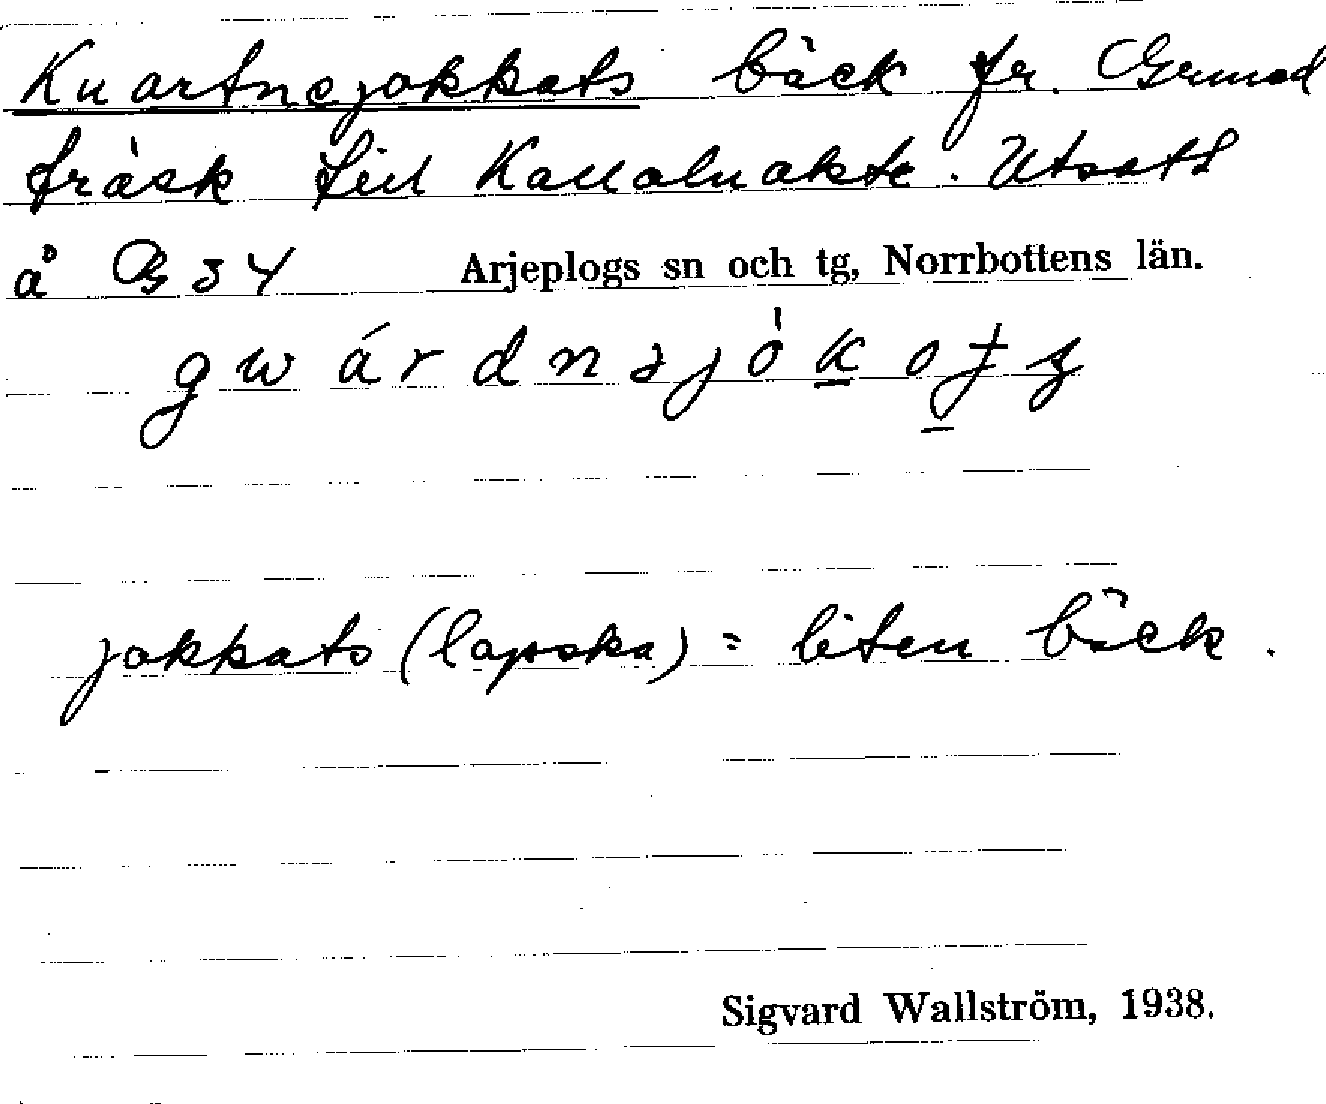 Kuartnejokkats bäck fr. Grund
träsk till Kallaluokte. Utsatt
å B 34 Arjeplogs sn och tg, Norrbottens län.
jokkats (lapska) = liten bäck.
Sigvard Wallström, 1938.